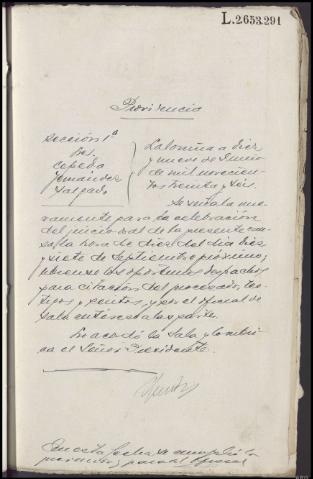 L.2653.291
Providencia
Sección 1ª
Cepeda
Fernández
Salgado
La Coruña a diez
y nueve de Junio
de mil novecien-
tos treinta y seis.
Se señala nue-
vamente para la celebración
del juicio oral de la presente cau-
sa, la hora de diez del día diez
y siete de Septiembre próximo,
líbrense los oportunos despachos
para citación del procesado, tes-
tigos y peritos, y por el oficial de
Sala entérese a las partes.
Lo acordó la Sala y lo rubri-
ca el Señor Presidente.
En esta fecha se cumplió la